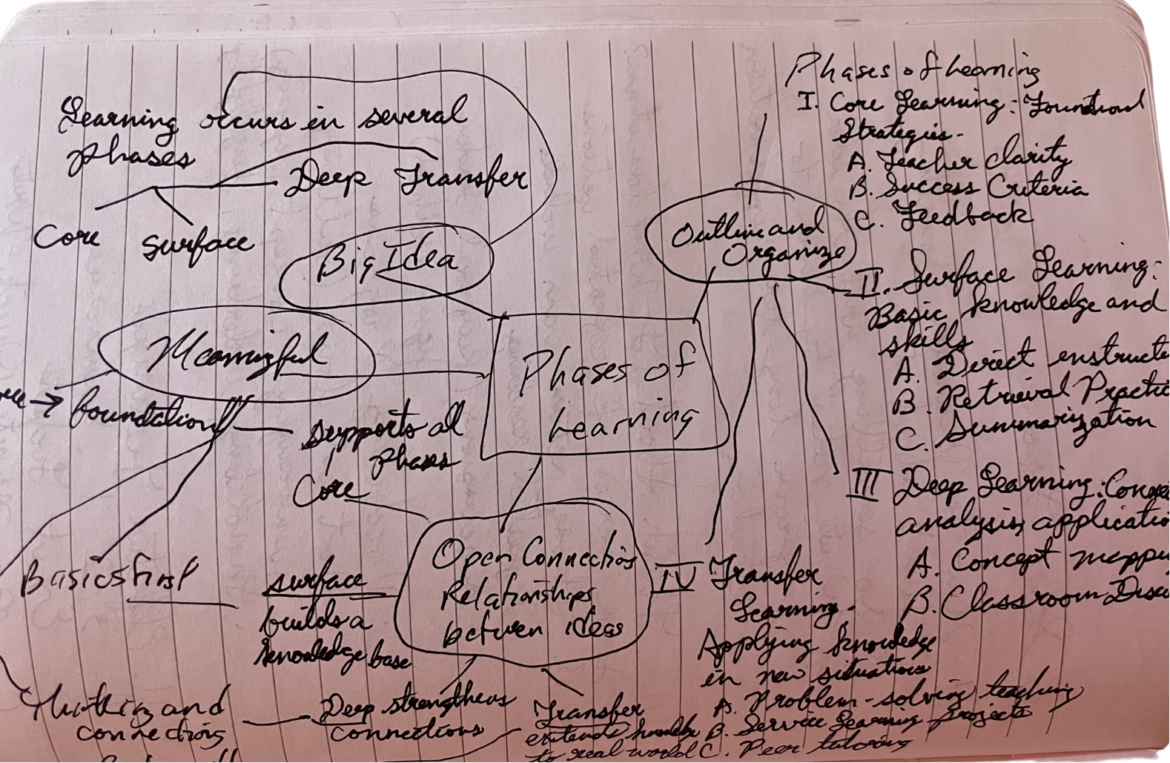 Learning occurs in several
phases
Deep Transfer
Core surface
Big Idea
Meaningful
foundation
supports all
phases
Core
Basics first
surface
builds a
knowledge base
Thinking and
connecting
Deep strengthens
connections
Transfer
extends
to real world
Phases of
Learning
Open Connections
Relationships
between ideas
Outline and
Organize
Phases of Learning
I. Core Learning: Foundational
Strategies.
A. Teacher clarity
B. Success Criteria
C. Feedback
II. Surface Learning:
Basic knowledge and
skills
A. Direct
B. Retrieval
C. Summarization
III Deep Learning:
analysis,
A. Concept
B. Classroom
IV Transfer
Learning.
Applying knowledge
in new situations
A. Problem-solving teaching
B. Service learning projects
C. Peer tutoring